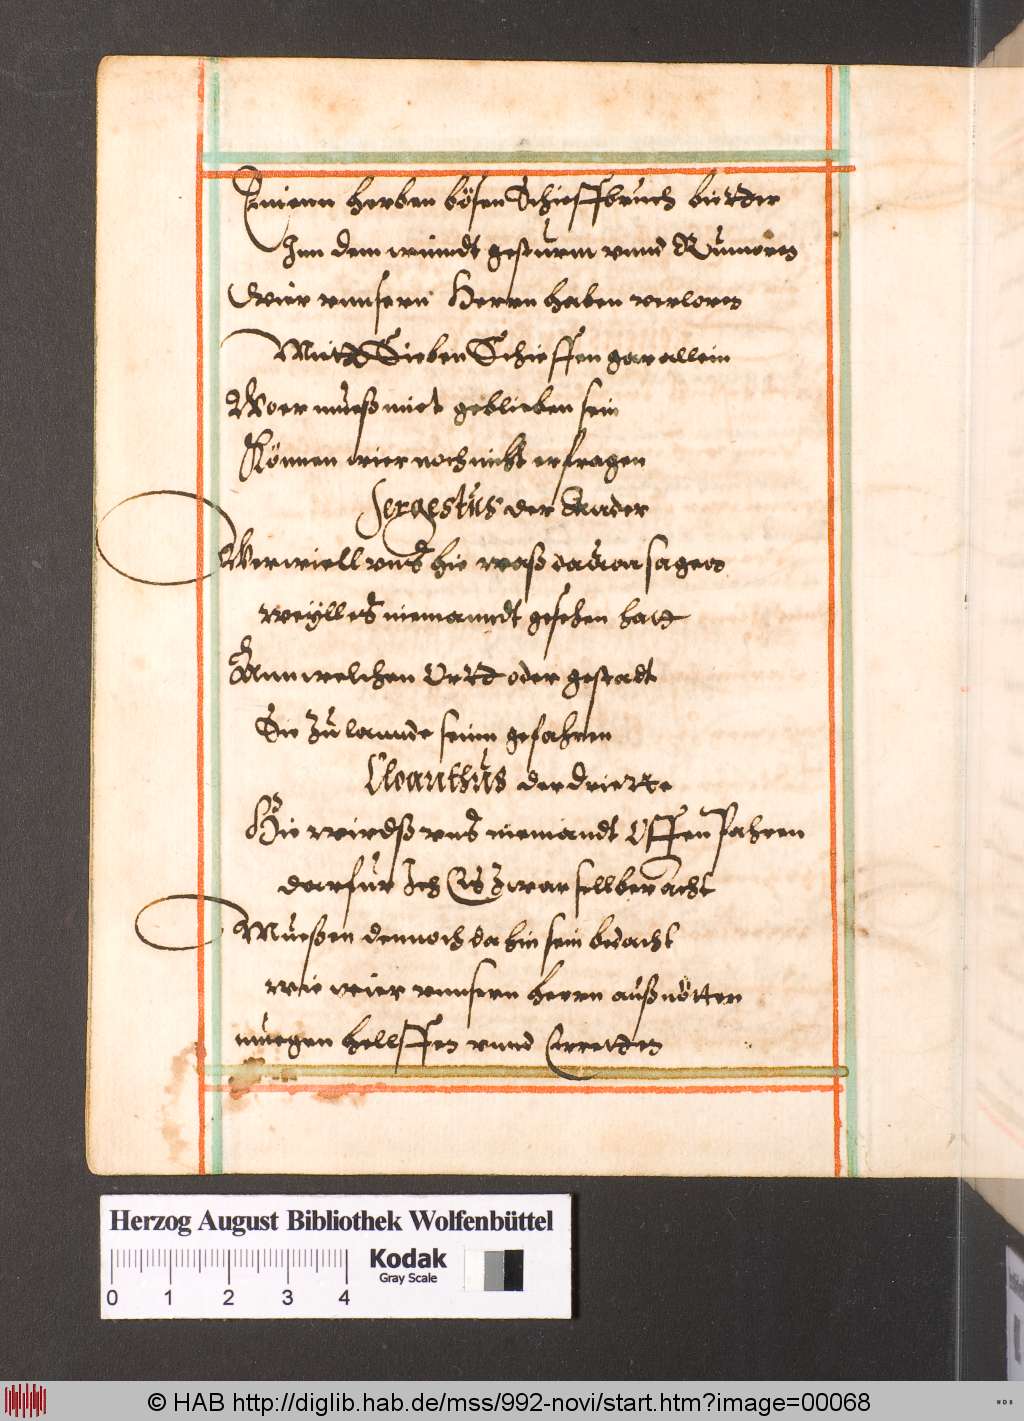 Einenn herben bösen Schieffbruch biettder
Jnn dem wiindt gesturm vnnd Rumorn
Wier vnnsern Herrn haben verlorn
Mitt Sieben Schieffen gar allein
Woer mueß miet geblieben sein
Können wier noch nicht erfragen
Sergestus der Ander
Wer wiell vns hie waß dauon sagen
weyll es niemanndt gesehen hatt
Ann welchen Ortt oder gestadt
Sie zu lannde seinn gefahren
Cloanthus der driette
Hie wirdß vns niemandt Offenpahren
darfur Jch Es zwar sellber acht
Mueßen dennoch dahin sein bedacht
wie wier vnnsern herrn auß nötten
muegen hellffen vnnd Erretten
Herzog August Bibliothek Wolfenbüttel
Kodak
Gray Scale
0 1 2 3 4
© HAB http://diglib.hab.de/mss/992-novi/start.htm?image=00068